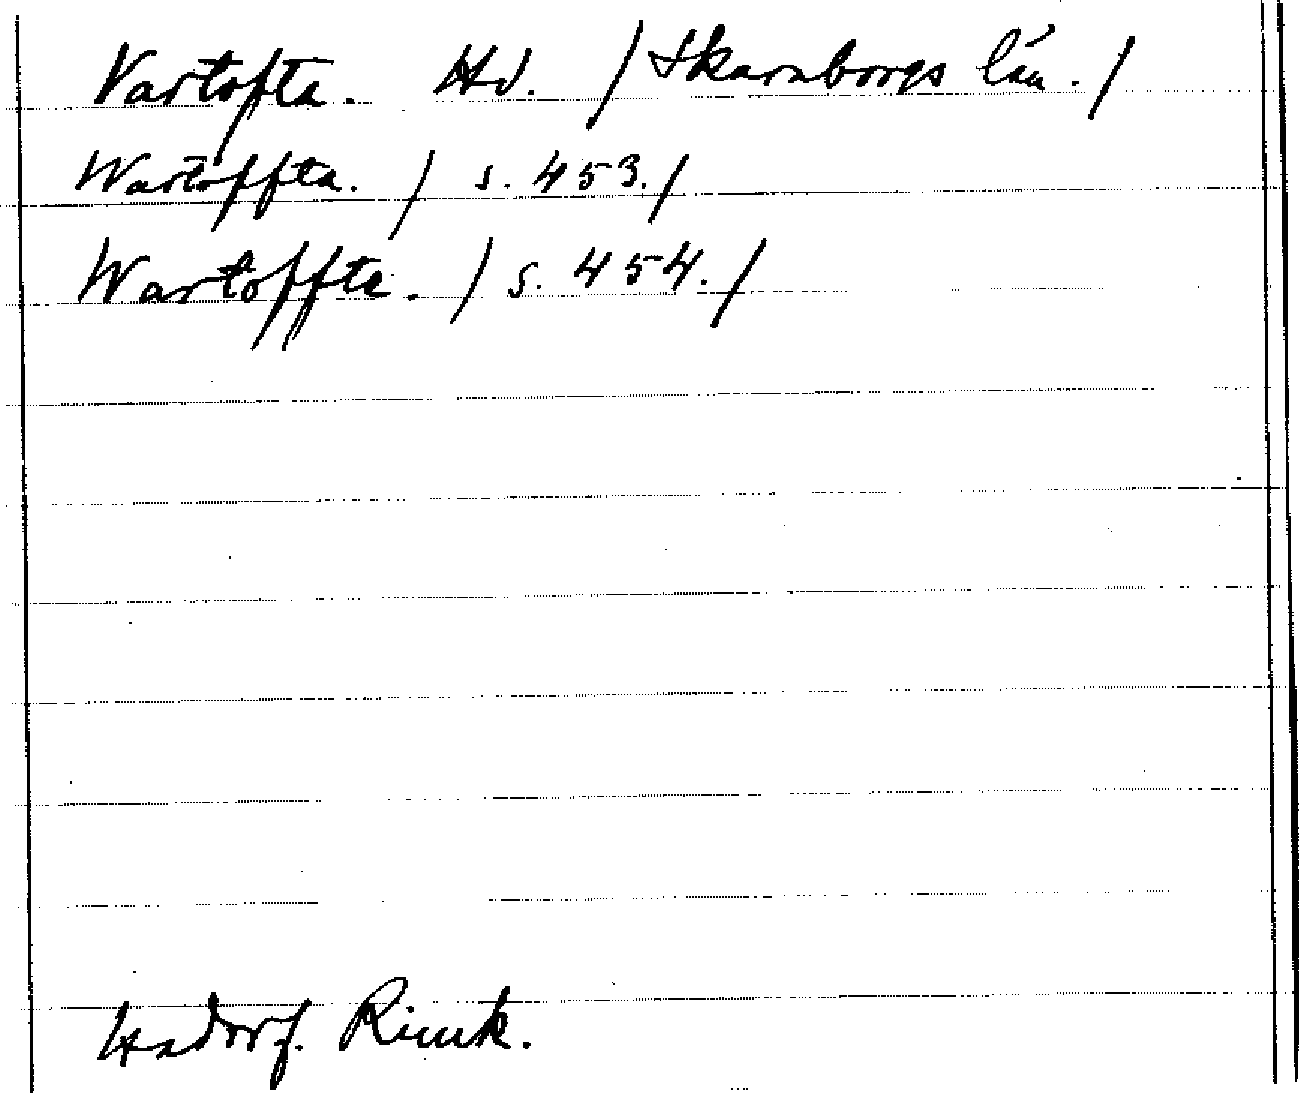 Vartofta. Hd. /Skaraborgs län./
Wartoffta. / s. 453./
Wartoffta. / s. 454./
Hadorf. Rimk.